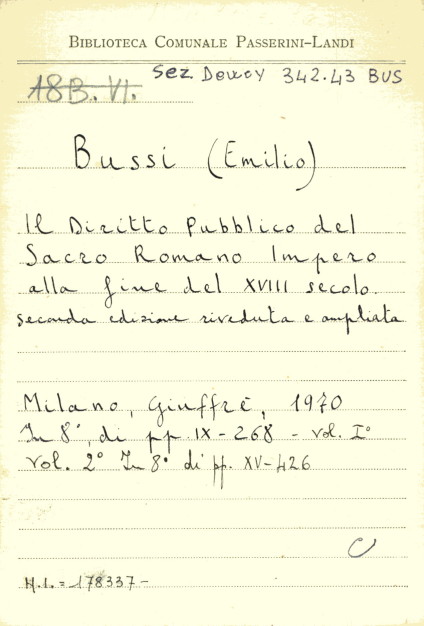 BIBLIOTECA COMUNALE PASSERINI-LANDI
Sez. Dewey 342.43 BUS
18B.VI.
Bussi (Emilio)
Il Diritto Pubblico del
Sacro Romano Impero
alla fine del XVIII secolo.
seconda edizione riveduta e ampliata
Milano, Giuffrè, 1970
In 8°, di pp. IX-268 - vol. I°
vol. 2° In 8° di pp. XV-426
C
N.I. = 178337-